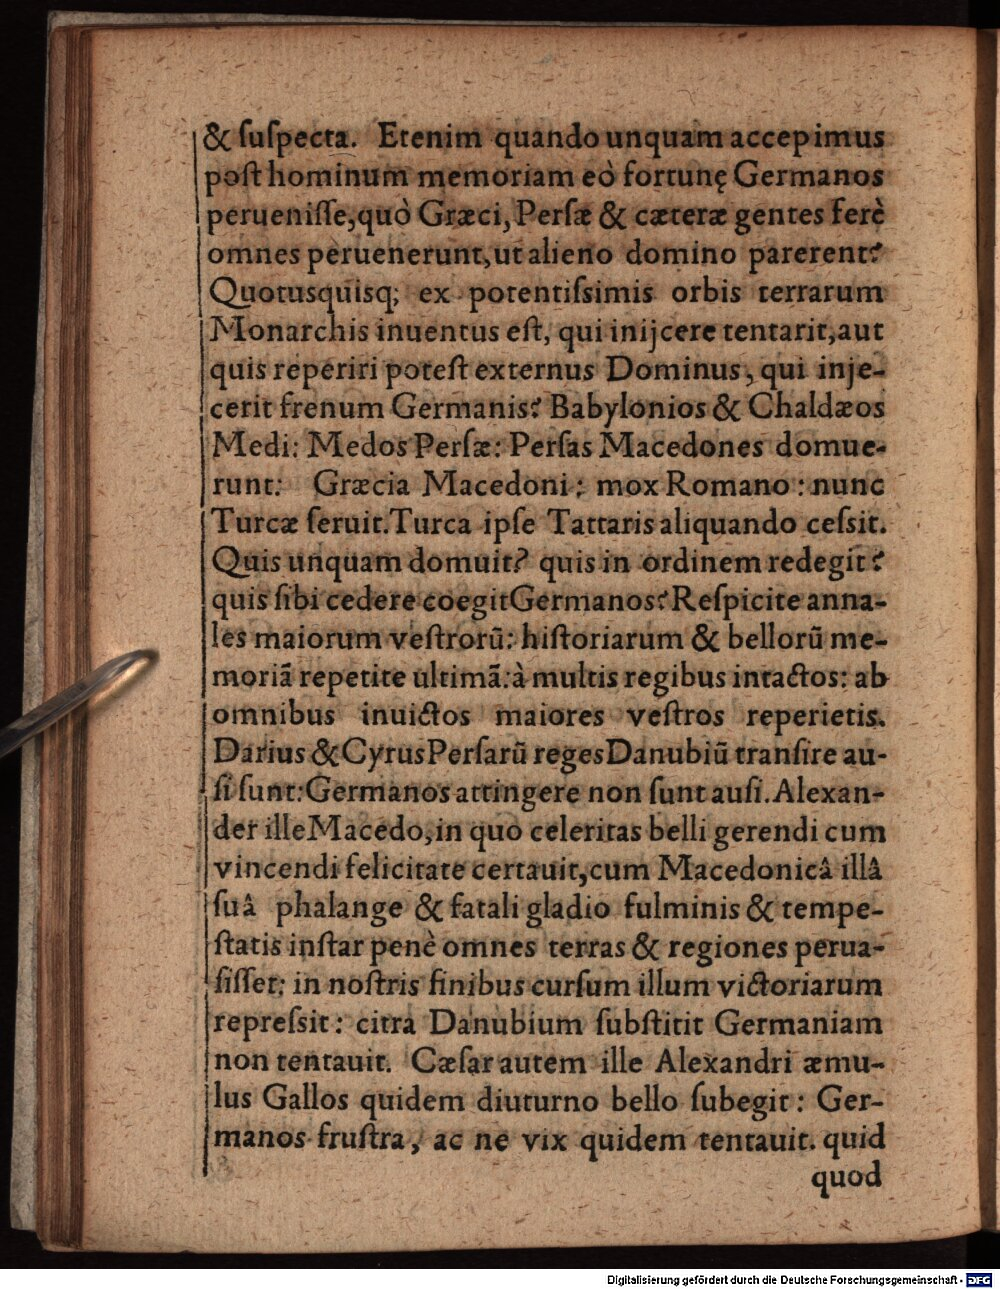 & ſuſpecta. Etenim quando unquam accepimus
poſt hominum memoriam eò fortunę Germanos
perueniſſe, quò Græci, Perſæ & cæteræ gentes ferè
omnes peruenerunt, ut alieno domino parerent?
Quotusquisq; ex potentiſsimis orbis terrarum
Monarchis inuentus eſt, qui inijcere tentarit, aut
quis reperiri poteſt externus Dominus, qui inje-
cerit frenum Germanis? Babylonios & Chaldæos
Medi: Medos Perſæ: Perſas Macedones domue-
runt: Græcia Macedoni: mox Romano: nunc
Turcæ ſeruit. Turca ipſe Tattaris aliquando ceſsit.
Quis unquam domuit? quis in ordinem redegit?
quis ſibi cedere coegit Germanos? Reſpicite anna-
les maiorum veſtrorũ: hiſtoriarum & bellorũ me-
moriã repetite ultimã: à multis regibus intactos: ab
omnibus inuictos maiores veſtros reperietis.
Darius & Cyrus Perſarũ reges Danubiũ tranſire au-
ſi ſunt: Germanos attingere non ſunt auſi. Alexan-
der ille Macedo, in quo celeritas belli gerendi cum
vincendi felicitate certauit, cum Macedonicâ illâ
ſuâ phalange & fatali gladio fulminis & tempe-
ſtatis inſtar penè omnes terras & regiones perua-
ſiſſet: in noſtris finibus curſum illum victoriarum
repreſsit: citra Danubium ſubſtitit Germaniam
non tentauit. Cæſar autem ille Alexandri æmu-
lus Gallos quidem diuturno bello ſubegit: Ger-
manos fruſtra, ac ne vix quidem tentauit. quid
quod
Digitalisierung gefördert durch die Deutsche Forschungsgemeinschaft - DFG